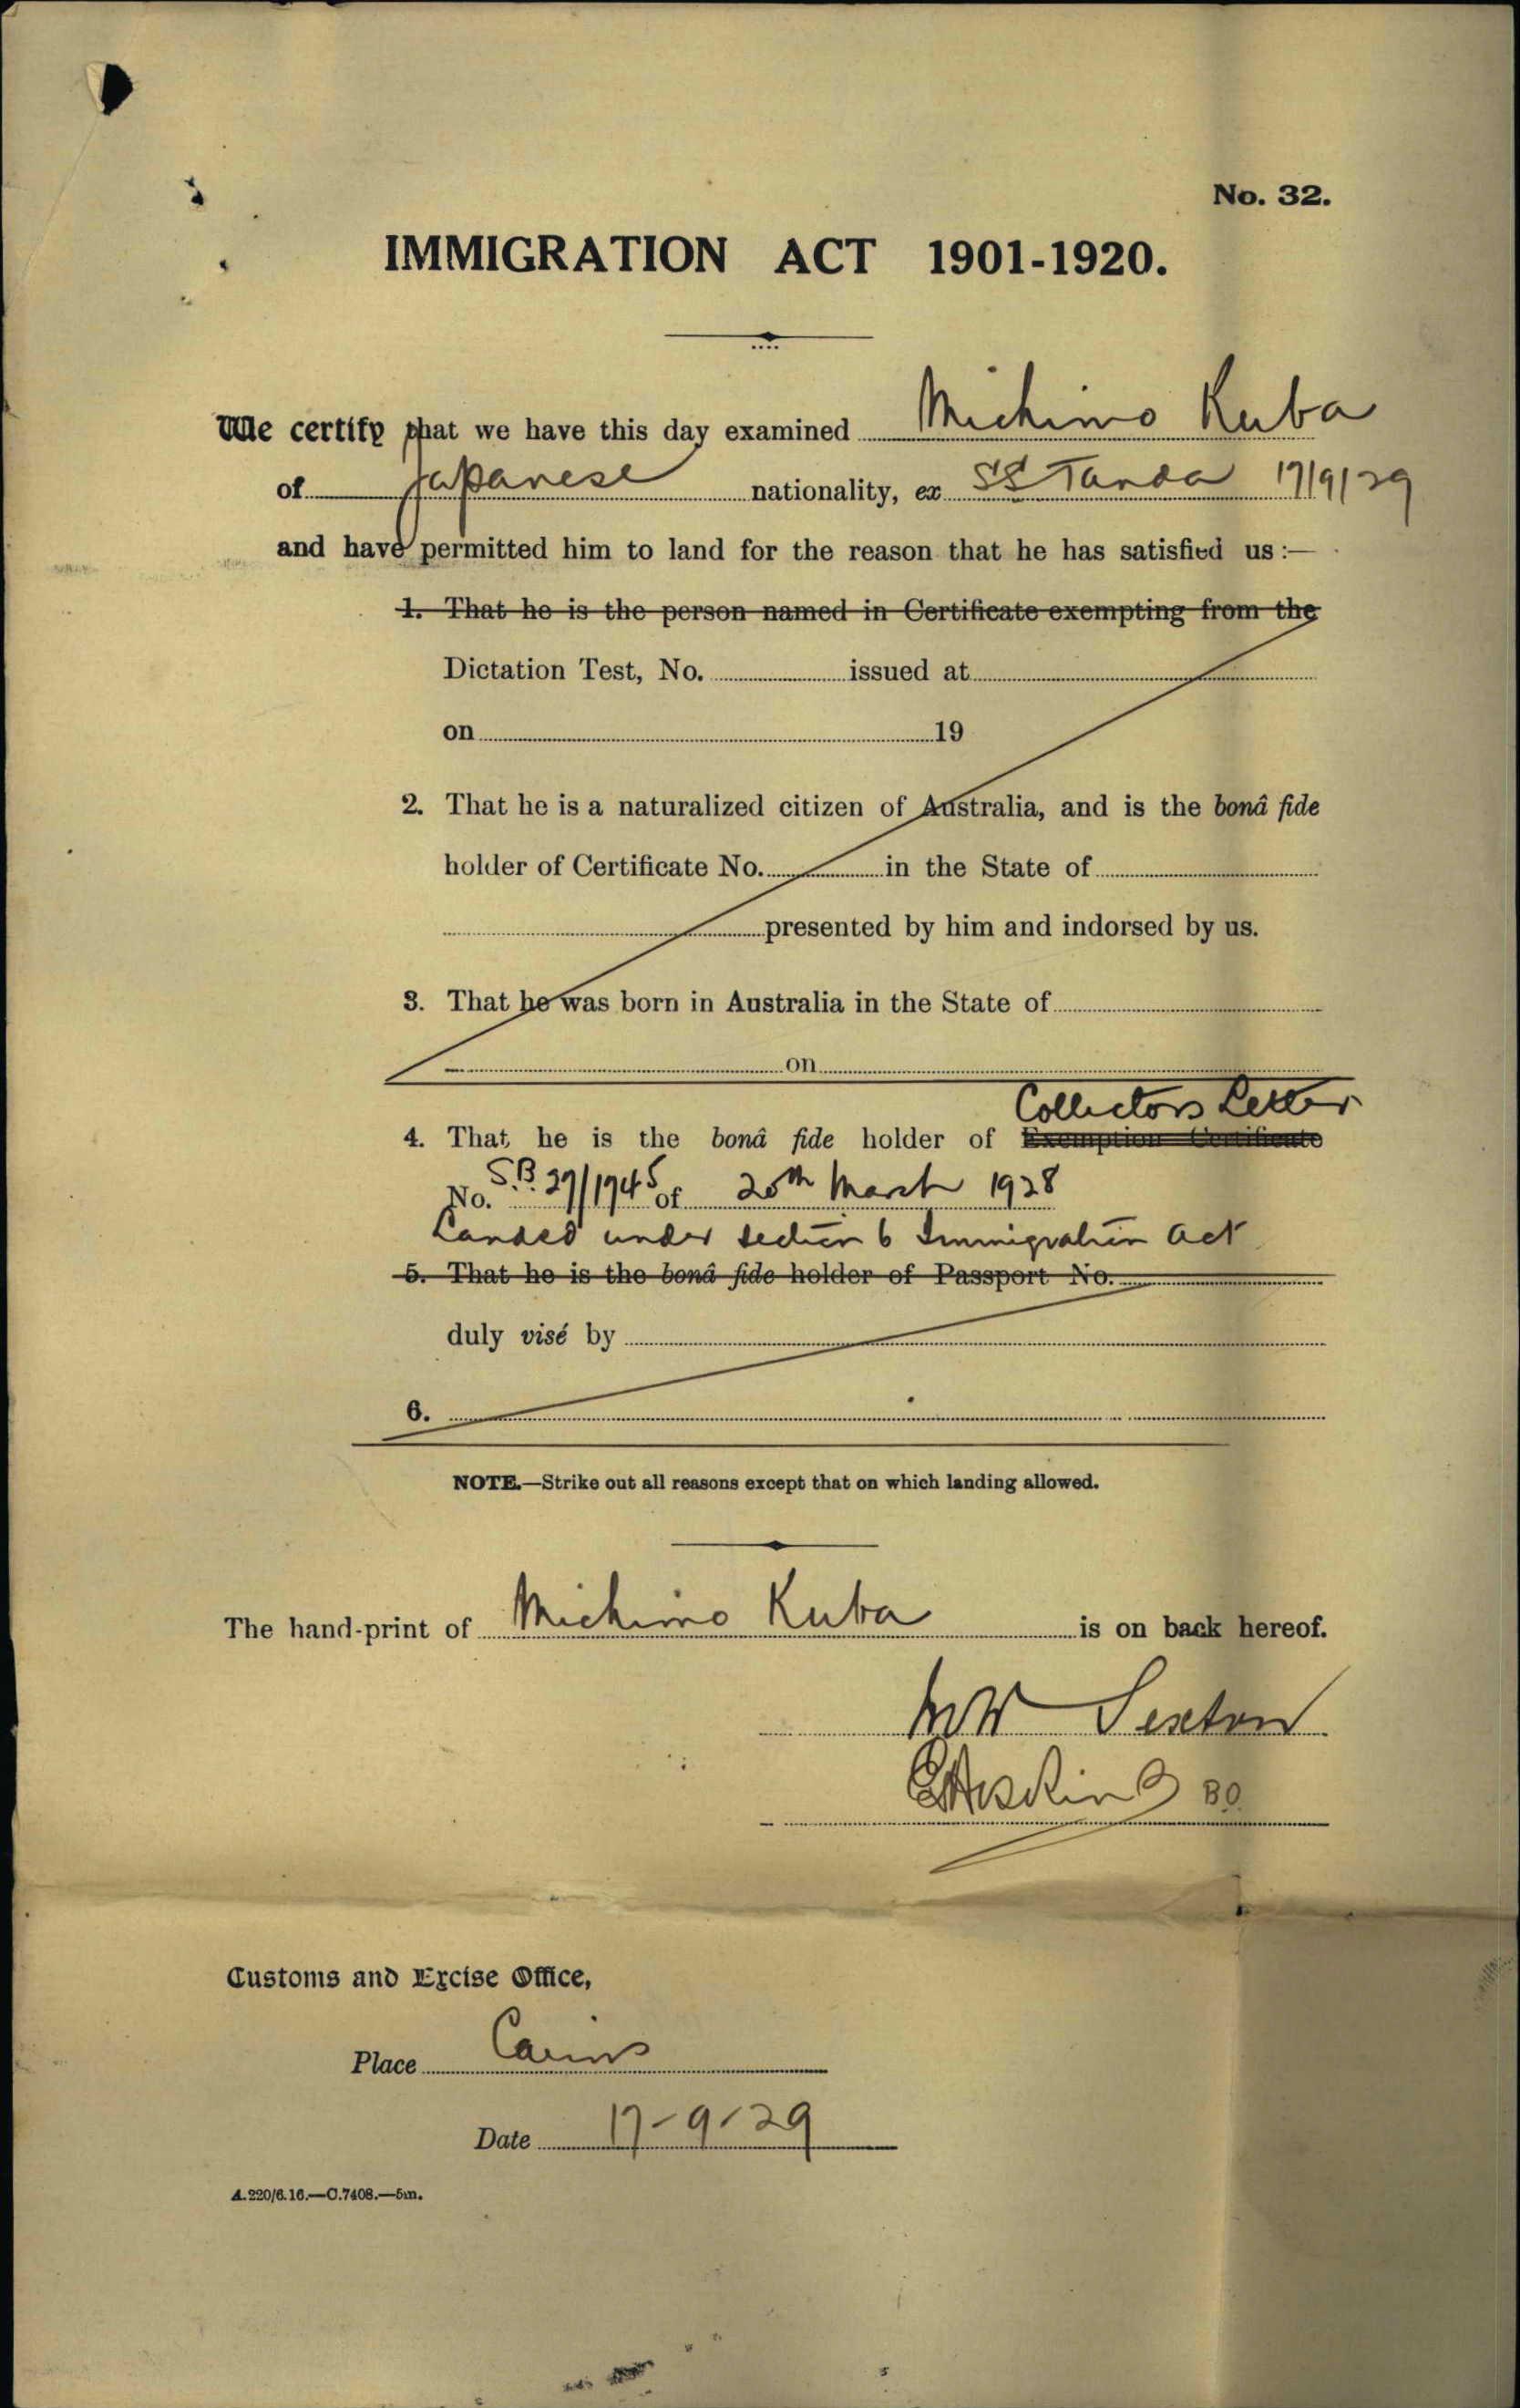 No. 32.
IMMIGRATION ACT 1901-1920.
We certify that we have this day examined Michimo Kuba
of Japanese nationality, ex SS Tanda 17/9/29
and have permitted him to land for the reason that he has satisfied us:—
1. That he is the person named in Certificate exempting from the
Dictation Test, No. issued at
on 19
2. That he is a naturalized citizen of Australia, and is the bonâ fide
holder of Certificate No. in the State of
presented by him and indorsed by us.
3. That he was born in Australia in the State of
on
Collectors Letter
4. That he is the bonâ fide holder of Exemption Certificate
No. S.B. 29/1945 of 20th March 1928
Landed under section 6 Immigration Act
5. That he is the bonâ fide holder of Passport No.
duly visé by
6.
NOTE.—Strike out all reasons except that on which landing allowed.
The hand-print of Michimo Kuba is on back hereof.
Sexton
BO
Customs and Excise Office,
Place Cairns
Date 17-9-29
A.220/6.16.—C.7408.—5m.